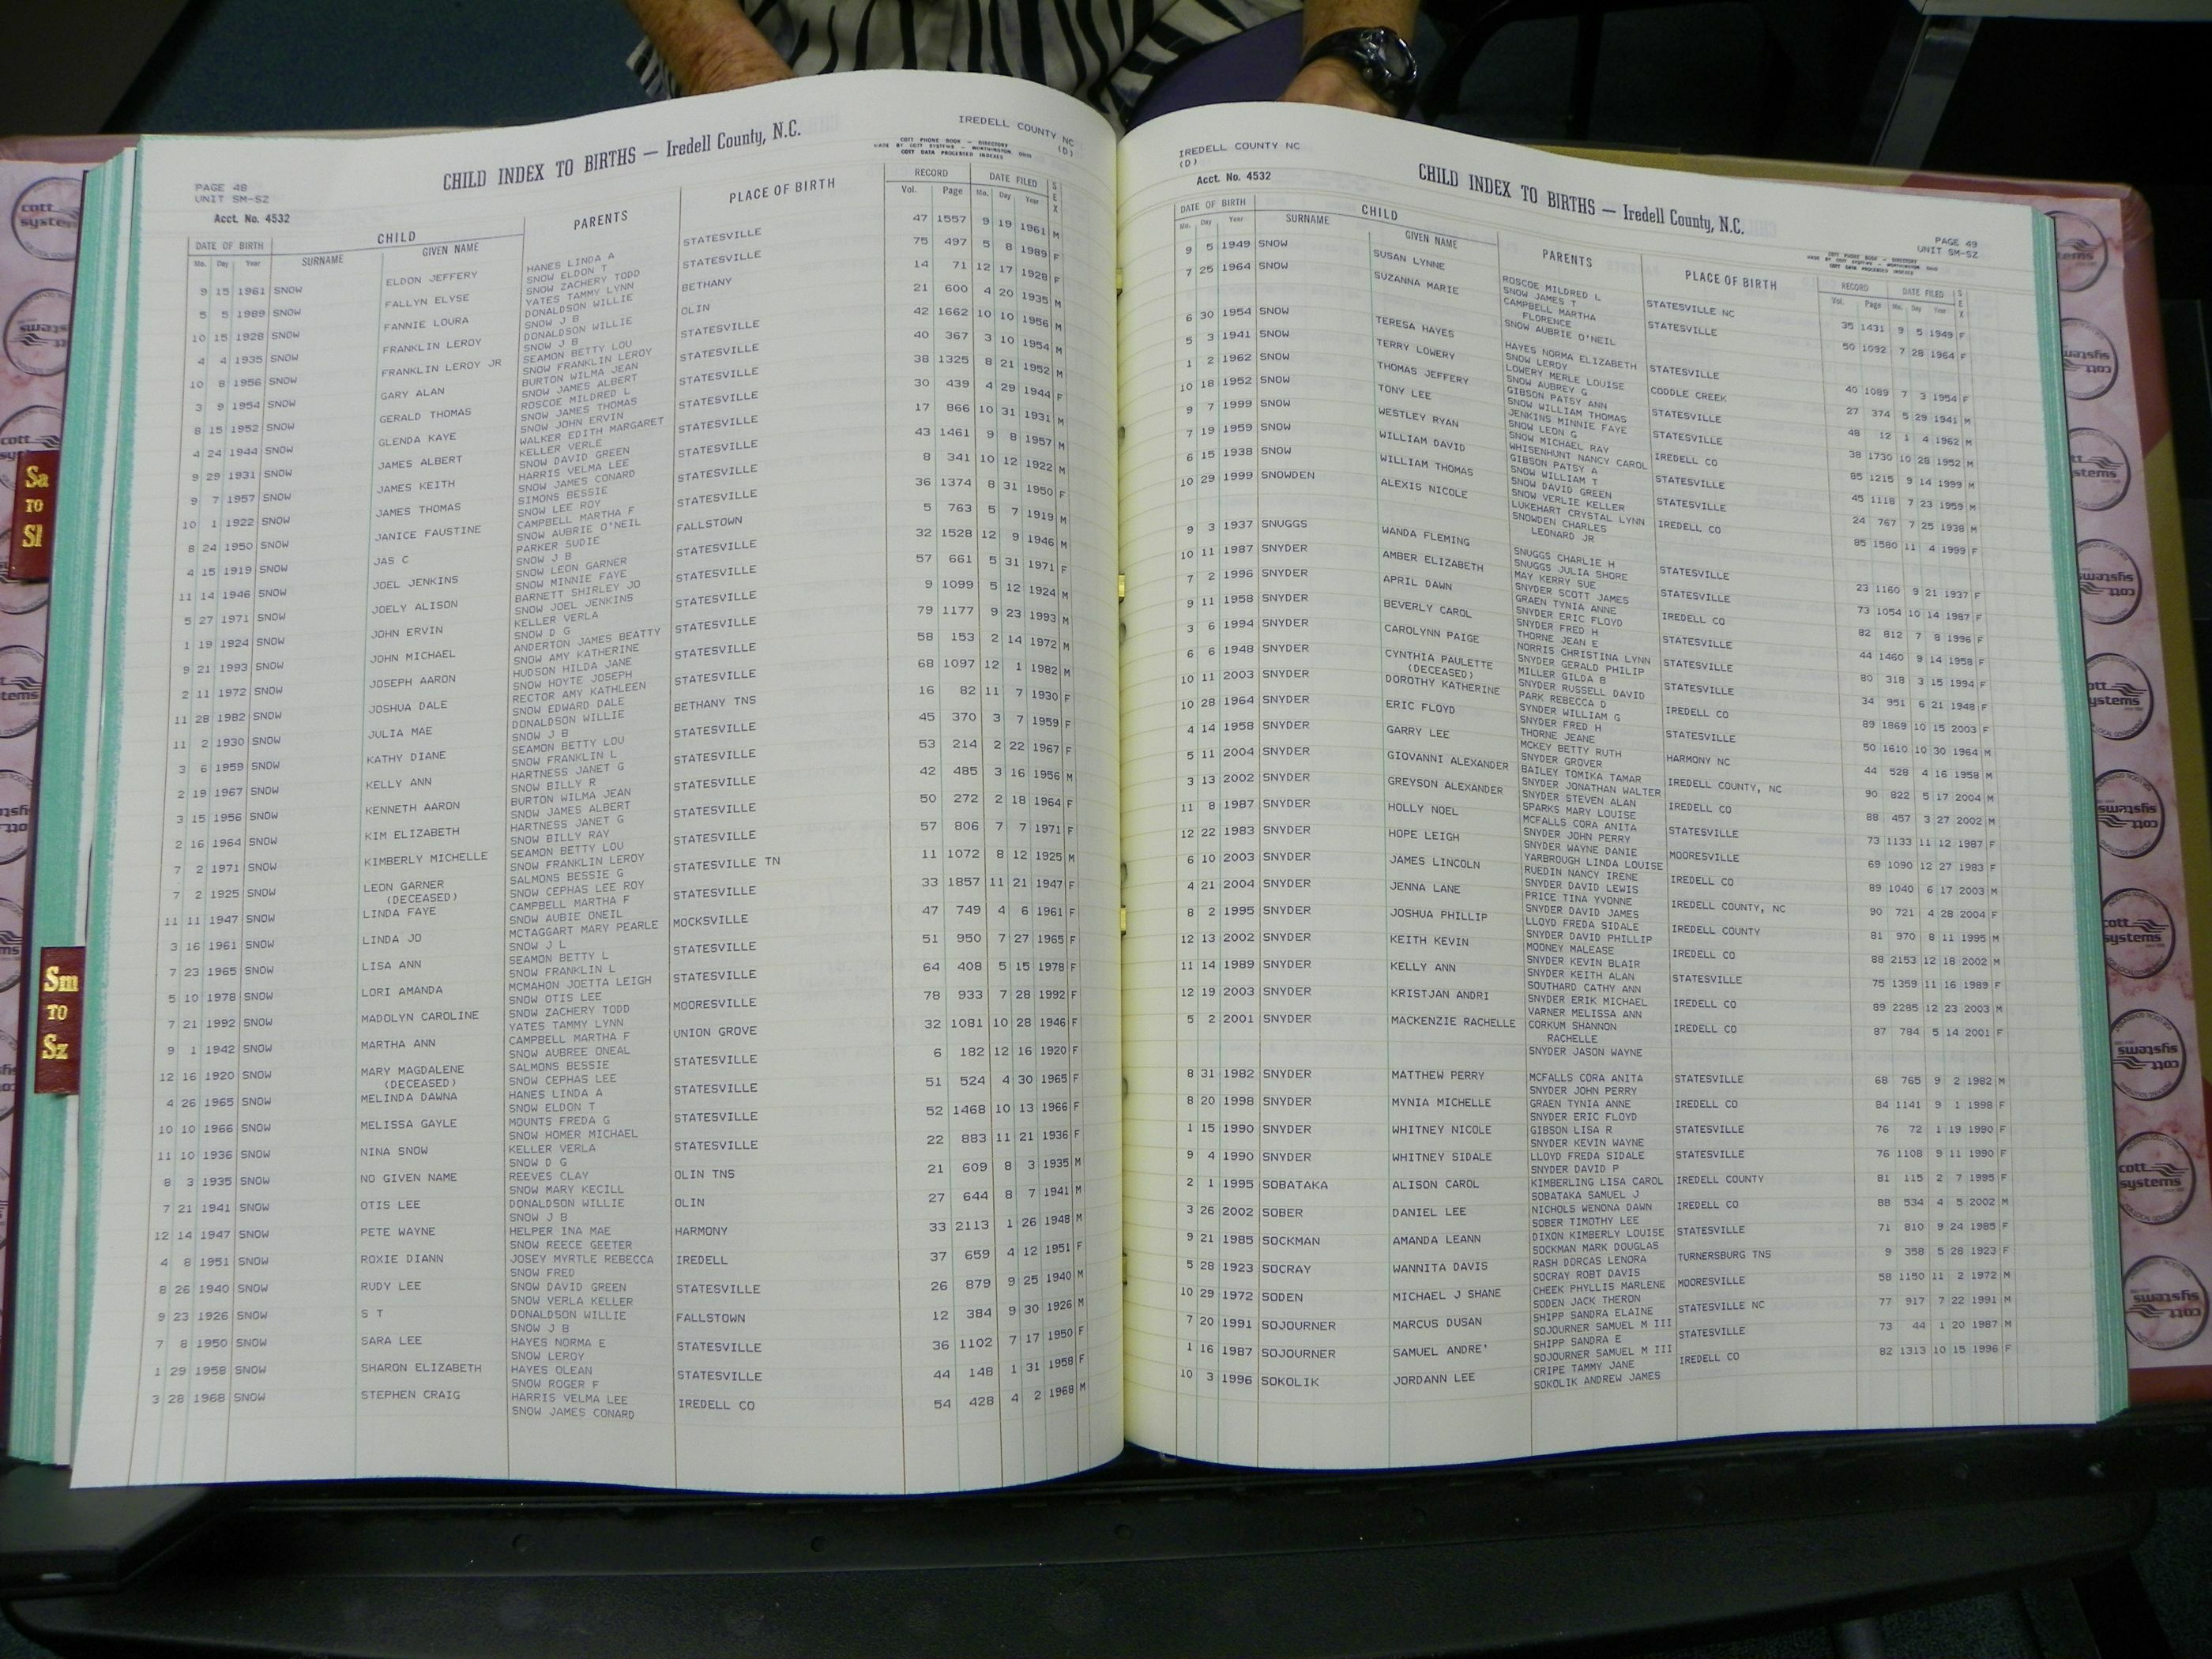 IREDELL COUNTY NC
(D)
CHILD INDEX TO BIRTHS — Iredell County, N.C.
COTT PHONE BOOK - DIRECTORY
MADE BY COTT SYSTEMS - WORTHINGTON, OHIO
COTT DATA PROCESSED INDEXES
PAGE 48
UNIT SM-SZ
Acct. No. 4532
DATE OF BIRTH CHILD PARENTS PLACE OF BIRTH RECORD DATE FILED SEX
Mo. Day Year SURNAME GIVEN NAME Vol. Page Mo. Day Year
9 15 1961 SNOW ELDON JEFFERY HANES LINDA A STATESVILLE 47 1557 9 19 1961 M
SNOW ELDON T
5 5 1989 SNOW FALLYN ELYSE SNOW ZACHERY TODD STATESVILLE 75 497 5 8 1989 F
YATES TAMMY LYNN
10 15 1928 SNOW FANNIE LOURA DONALDSON WILLIE BETHANY 14 71 12 17 1928 F
SNOW J B
4 4 1935 SNOW FRANKLIN LEROY DONALDSON WILLIE OLIN 21 600 4 20 1935 M
SNOW J B
10 8 1956 SNOW FRANKLIN LEROY JR SEAMON BETTY LOU STATESVILLE 42 1662 10 10 1956 M
SNOW FRANKLIN LEROY
3 9 1954 SNOW GARY ALAN BURTON WILMA JEAN STATESVILLE 40 367 3 10 1954 M
SNOW JAMES ALBERT
8 15 1952 SNOW GERALD THOMAS ROSCOE MILDRED L STATESVILLE 38 1325 8 21 1952 M
SNOW JAMES THOMAS
4 24 1944 SNOW GLENDA KAYE SNOW JOHN ERVIN STATESVILLE 30 439 4 29 1944 F
WALKER EDITH MARGARET
9 29 1931 SNOW JAMES ALBERT KELLER VERLE STATESVILLE 17 866 10 31 1931 M
SNOW DAVID GREEN
9 7 1957 SNOW JAMES KEITH HARRIS VELMA LEE STATESVILLE 43 1461 9 8 1957 M
SNOW JAMES CONARD
10 1 1922 SNOW JAMES THOMAS SIMONS BESSIE STATESVILLE 8 341 10 12 1922 M
SNOW LEE ROY
8 24 1950 SNOW JANICE FAUSTINE CAMPBELL MARTHA F STATESVILLE 36 1374 8 31 1950 F
SNOW AUBRIE O'NEIL
4 15 1919 SNOW JAS C PARKER SUDIE FALLSTOWN 5 763 5 7 1919 M
SNOW J B
11 14 1946 SNOW JOEL JENKINS SNOW LEON GARNER STATESVILLE 32 1528 12 9 1946 M
SNOW MINNIE FAYE
5 27 1971 SNOW JOELY ALISON BARNETT SHIRLEY JO STATESVILLE 57 661 5 31 1971 F
SNOW JOEL JENKINS
1 19 1924 SNOW JOHN ERVIN KELLER VERLA STATESVILLE 9 1099 5 12 1924 M
SNOW D G
9 21 1993 SNOW JOHN MICHAEL ANDERTON JAMES BEATTY STATESVILLE 79 1177 9 23 1993 M
SNOW AMY KATHERINE
2 11 1972 SNOW JOSEPH AARON HUDSON HILDA JANE STATESVILLE 58 153 2 14 1972 M
SNOW HOYTE JOSEPH
11 28 1982 SNOW JOSHUA DALE RECTOR AMY KATHLEEN STATESVILLE 68 1097 12 1 1982 M
SNOW EDWARD DALE
11 2 1930 SNOW JULIA MAE DONALDSON WILLIE BETHANY TNS 16 82 11 7 1930 F
SNOW J B
3 6 1959 SNOW KATHY DIANE SEAMON BETTY LOU STATESVILLE 45 370 3 7 1959 F
SNOW FRANKLIN L
2 19 1967 SNOW KELLY ANN HARTNESS JANET G STATESVILLE 53 214 2 22 1967 F
SNOW BILLY R
3 15 1956 SNOW KENNETH AARON BURTON WILMA JEAN STATESVILLE 42 485 3 16 1956 M
SNOW JAMES ALBERT
2 16 1964 SNOW KIM ELIZABETH HARTNESS JANET G STATESVILLE 50 272 2 18 1964 F
SNOW BILLY RAY
7 2 1971 SNOW KIMBERLY MICHELLE SEAMON BETTY LOU STATESVILLE 57 806 7 7 1971 F
SNOW FRANKLIN LEROY
7 2 1925 SNOW LEON GARNER SALMONS BESSIE G STATESVILLE TN 11 1072 8 12 1925 M
(DECEASED) SNOW CEPHAS LEE ROY
11 11 1947 SNOW LINDA FAYE CAMPBELL MARTHA F STATESVILLE 33 1857 11 21 1947 F
SNOW AUBIE ONEIL
3 16 1961 SNOW LINDA JO MCTAGGART MARY PEARLE MOCKSVILLE 47 749 4 6 1961 F
SNOW J L
7 23 1965 SNOW LISA ANN SEAMON BETTY L STATESVILLE 51 950 7 27 1965 F
SNOW FRANKLIN L
5 10 1978 SNOW LORI AMANDA MCMAHON JOETTA LEIGH STATESVILLE 64 408 5 15 1978 F
SNOW OTIS LEE
7 21 1992 SNOW MADOLYN CAROLINE SNOW ZACHERY TODD MOORESVILLE 78 933 7 28 1992 F
YATES TAMMY LYNN
9 1 1942 SNOW MARTHA ANN CAMPBELL MARTHA F UNION GROVE 32 1081 10 28 1946 F
SNOW AUBREE ONEAL
12 16 1920 SNOW MARY MAGDALENE SALMONS BESSIE STATESVILLE 6 182 12 16 1920 F
(DECEASED) SNOW CEPHAS LEE
4 26 1965 SNOW MELINDA DAWNA HANES LINDA A STATESVILLE 51 524 4 30 1965 F
SNOW ELDON T
10 10 1966 SNOW MELISSA GAYLE MOUNTS FREDA G STATESVILLE 52 1468 10 13 1966 F
SNOW HOMER MICHAEL
11 10 1936 SNOW NINA SNOW KELLER VERLA STATESVILLE 22 883 11 21 1936 F
SNOW D G
8 3 1935 SNOW NO GIVEN NAME REEVES CLAY OLIN TNS 21 609 8 3 1935 M
SNOW MARY KECILL
7 21 1941 SNOW OTIS LEE DONALDSON WILLIE OLIN 27 644 8 7 1941 M
SNOW J B
12 14 1947 SNOW PETE WAYNE HELPER INA MAE HARMONY 33 2113 1 26 1948 M
SNOW REECE GEETER
4 8 1951 SNOW ROXIE DIANN JOSEY MYRTLE REBECCA IREDELL 37 659 4 12 1951 F
SNOW FRED
8 26 1940 SNOW RUDY LEE SNOW DAVID GREEN STATESVILLE 26 879 9 25 1940 M
SNOW VERLA KELLER
9 23 1926 SNOW S T DONALDSON WILLIE FALLSTOWN 12 384 9 30 1926 M
SNOW J B
7 8 1950 SNOW SARA LEE HAYES NORMA E STATESVILLE 36 1102 7 17 1950 F
SNOW LEROY
1 29 1958 SNOW SHARON ELIZABETH HAYES OLEAN STATESVILLE 44 148 1 31 1958 F
SNOW ROGER F
3 28 1968 SNOW STEPHEN CRAIG HARRIS VELMA LEE IREDELL CO 54 428 4 2 1968 M
SNOW JAMES CONARD
IREDELL COUNTY NC
(D)
Acct. No. 4532
CHILD INDEX TO BIRTHS — Iredell County, N.C.
PAGE 49
UNIT SM-SZ
COTT PHONE BOOK - DIRECTORY
MADE BY COTT SYSTEMS - WORTHINGTON, OHIO
COTT DATA PROCESSED INDEXES
DATE OF BIRTH CHILD PARENTS PLACE OF BIRTH RECORD DATE FILED SEX
Mo. Day Year SURNAME GIVEN NAME Vol. Page Mo. Day Year
9 5 1949 SNOW SUSAN LYNNE ROSCOE MILDRED L STATESVILLE NC 35 1431 9 5 1949 F
SNOW JAMES T
7 25 1964 SNOW SUZANNA MARIE CAMPBELL MARTHA STATESVILLE 50 1092 7 28 1964 F
FLORENCE
SNOW AUBRIE O'NEIL
6 30 1954 SNOW TERESA HAYES HAYES NORMA ELIZABETH STATESVILLE 40 1089 7 3 1954 F
SNOW LEROY
5 3 1941 SNOW TERRY LOWERY LOWERY MERLE LOUISE CODDLE CREEK 27 374 5 29 1941 M
SNOW AUBREY G
1 2 1962 SNOW THOMAS JEFFERY GIBSON PATSY ANN STATESVILLE 48 12 1 4 1962 M
SNOW WILLIAM THOMAS
10 18 1952 SNOW TONY LEE JENKINS MINNIE FAYE STATESVILLE 38 1730 10 28 1952 M
SNOW LEON G
9 7 1999 SNOW WESTLEY RYAN SNOW MICHAEL RAY IREDELL CO 85 1215 9 14 1999 M
WHISENHUNT NANCY CAROL
7 19 1959 SNOW WILLIAM DAVID GIBSON PATSY A STATESVILLE 45 1118 7 23 1959 M
SNOW WILLIAM T
6 15 1938 SNOW WILLIAM THOMAS SNOW DAVID GREEN STATESVILLE 24 767 7 25 1938 M
SNOW VERLIE KELLER
10 29 1999 SNOWDEN ALEXIS NICOLE LUKEHART CRYSTAL LYNN IREDELL CO 85 1580 11 4 1999 F
SNOWDEN CHARLES
LEONARD JR
9 3 1937 SNUGGS WANDA FLEMING SNUGGS CHARLIE H STATESVILLE 23 1160 9 21 1937 F
SNUGGS JULIA SHORE
10 11 1987 SNYDER AMBER ELIZABETH MAY KERRY SUE STATESVILLE 73 1054 10 14 1987 F
SNYDER SCOTT JAMES
7 2 1996 SNYDER APRIL DAWN GRAEN TYNIA ANNE IREDELL CO 82 812 7 8 1996 F
SNYDER ERIC FLOYD
9 11 1958 SNYDER BEVERLY CAROL SNYDER FRED H STATESVILLE 44 1460 9 14 1958 F
THORNE JEAN E
3 6 1994 SNYDER CAROLYNN PAIGE NORRIS CHRISTINA LYNN STATESVILLE 80 318 3 15 1994 F
SNYDER GERALD PHILIP
6 6 1948 SNYDER CYNTHIA PAULETTE MILLER GILDA B STATESVILLE 34 951 6 21 1948 F
(DECEASED) SNYDER RUSSELL DAVID
10 11 2003 SNYDER DOROTHY KATHERINE PARK REBECCA D IREDELL CO 89 1869 10 15 2003 F
SYNDER WILLIAM G
10 28 1964 SNYDER ERIC FLOYD SNYDER FRED H STATESVILLE 50 1610 10 30 1964 M
THORNE JEANE
4 14 1958 SNYDER GARRY LEE MCKEY BETTY RUTH HARMONY NC 44 528 4 16 1958 M
SNYDER GROVER
5 11 2004 SNYDER GIOVANNI ALEXANDER BAILEY TOMIKA TAMAR IREDELL COUNTY, NC 90 822 5 17 2004 M
SNYDER JONATHAN WALTER
3 13 2002 SNYDER GREYSON ALEXANDER SNYDER STEVEN ALAN IREDELL CO 88 457 3 27 2002 M
SPARKS MARY LOUISE
11 8 1987 SNYDER HOLLY NOEL MCFALLS CORA ANITA STATESVILLE 73 1133 11 12 1987 F
SNYDER JOHN PERRY
12 22 1983 SNYDER HOPE LEIGH SNYDER WAYNE DANIE MOORESVILLE 69 1090 12 27 1983 F
YARBROUGH LINDA LOUISE
6 10 2003 SNYDER JAMES LINCOLN RUEDIN NANCY IRENE IREDELL CO 89 1040 6 17 2003 M
SNYDER DAVID LEWIS
4 21 2004 SNYDER JENNA LANE PRICE TINA YVONNE IREDELL COUNTY, NC 90 721 4 28 2004 F
SNYDER DAVID JAMES
8 2 1995 SNYDER JOSHUA PHILLIP LLOYD FREDA SIDALE IREDELL COUNTY 81 970 8 11 1995 M
SNYDER DAVID PHILLIP
12 13 2002 SNYDER KEITH KEVIN MOONEY MALEASE IREDELL CO 88 2153 12 18 2002 M
SNYDER KEVIN BLAIR
11 14 1989 SNYDER KELLY ANN SNYDER KEITH ALAN STATESVILLE 75 1359 11 16 1989 F
SOUTHARD CATHY ANN
12 19 2003 SNYDER KRISTJAN ANDRI SNYDER ERIK MICHAEL IREDELL CO 89 2285 12 23 2003 M
VARNER MELISSA ANN
5 2 2001 SNYDER MACKENZIE RACHELLE CORKUM SHANNON IREDELL CO 87 784 5 14 2001 F
RACHELLE
SNYDER JASON WAYNE
8 31 1982 SNYDER MATTHEW PERRY MCFALLS CORA ANITA STATESVILLE 68 765 9 2 1982 M
SNYDER JOHN PERRY
8 20 1998 SNYDER MYNIA MICHELLE GRAEN TYNIA ANNE IREDELL CO 84 1141 9 1 1998 F
SNYDER ERIC FLOYD
1 15 1990 SNYDER WHITNEY NICOLE GIBSON LISA R STATESVILLE 76 72 1 19 1990 F
SNYDER KEVIN WAYNE
9 4 1990 SNYDER WHITNEY SIDALE LLOYD FREDA SIDALE STATESVILLE 76 1108 9 11 1990 F
SNYDER DAVID P
2 1 1995 SOBATAKA ALISON CAROL KIMBERLING LISA CAROL IREDELL COUNTY 81 115 2 7 1995 F
SOBATAKA SAMUEL J
3 26 2002 SOBER DANIEL LEE NICHOLS WENONA DAWN IREDELL CO 88 534 4 5 2002 M
SOBER TIMOTHY LEE
9 21 1985 SOCKMAN AMANDA LEANN DIXON KIMBERLY LOUISE STATESVILLE 71 810 9 24 1985 F
SOCKMAN MARK DOUGLAS
5 28 1923 SOCRAY WANNITA DAVIS RASH DORCAS LENORA TURNERSBURG TNS 9 358 5 28 1923 F
SOCRAY ROBT DAVIS
10 29 1972 SODEN MICHAEL J SHANE CHEEK PHYLLIS MARLENE MOORESVILLE 58 1150 11 2 1972 M
SODEN JACK THERON
7 20 1991 SOJOURNER MARCUS DUSAN SHIPP SANDRA ELAINE STATESVILLE NC 77 917 7 22 1991 M
SOJOURNER SAMUEL M III
1 16 1987 SOJOURNER SAMUEL ANDRE' SHIPP SANDRA E STATESVILLE 73 44 1 20 1987 M
SOJOURNER SAMUEL M III
10 3 1996 SOKOLIK JORDANN LEE CRIPE TAMMY JANE IREDELL CO 82 1313 10 15 1996 F
SOKOLIK ANDREW JAMES
Sa
TO
Sl
Sm
TO
Sz
cott
systems